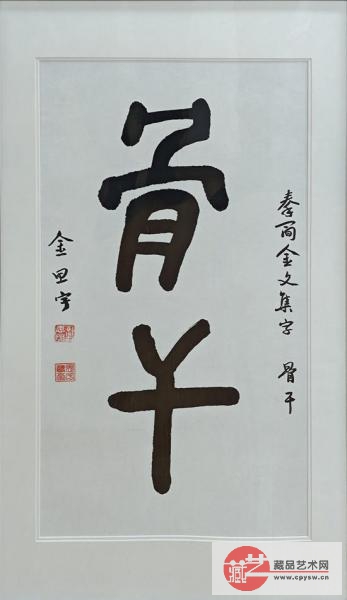 骨干
秦简金文集字 骨干
金思宇
藏品艺术网
www.cpysw.cn